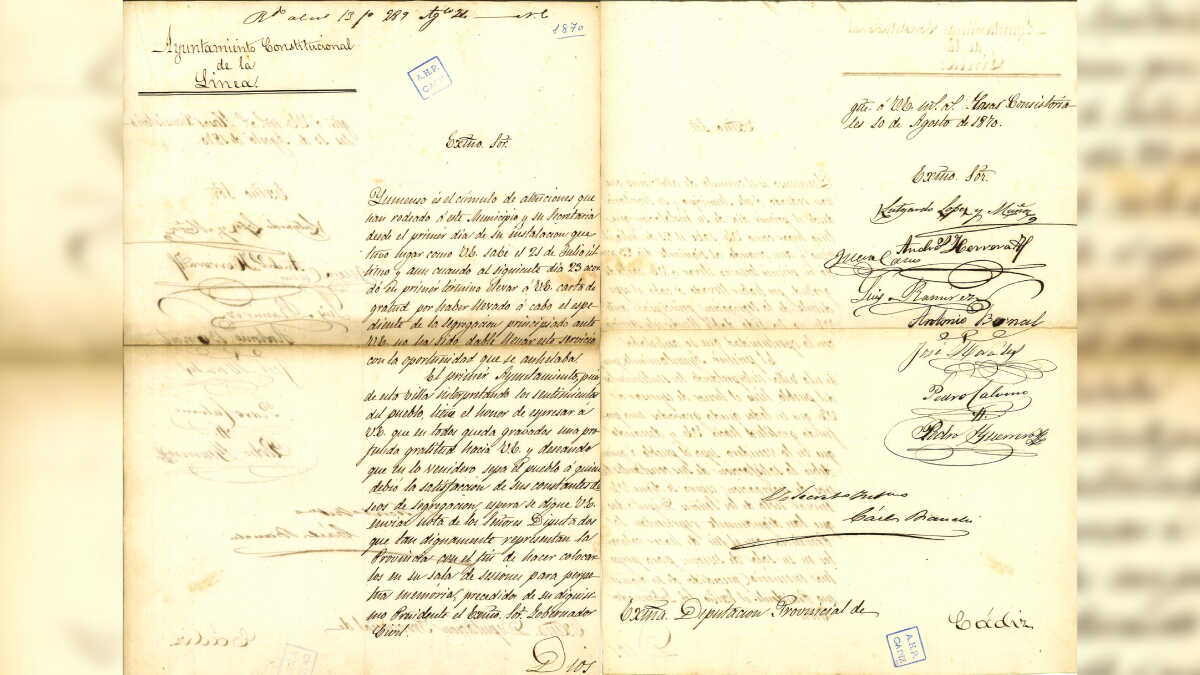 1870
Ayuntamiento Constitucional
de la
Linea.
A.H.P.
CADIZ
Exmo. Sor.
Ymenso es el cúmulo de atenciones que
han rodeado á este Municipio y su Secretaria
desde el primer dia de su instalacion que
tuvo lugar como VE. sabe el 21 de Julio úl
timo y aun cuando al siguiente dia 23 acor
dó en primer término llevar á VE. carta de
gratitud por haber llevado á cabo el espe
diente de la segregacion principiado ante
VE. no ha sido dable llenar este servicio
con la oportunidad que se anhelaba.
El primer Ayuntamiento, pues
de esta villa interpretando los sentimientos
del pueblo, tiene el honor de espresar á
VE. que en todos queda grabados una pro
funda gratitud hacia VE. y deseando
que en lo venidero sepa el pueblo á quien
debió la satisfaccion de sus constantes de
seos de segregacion, espera se digne VE.
enviar nota de los Señores Diputados
que tan dignamente representan la
Provincia con el fin de hacer colocar
los en su sala de sesiones para perpe
tua memoria, precedido de su dignisi
mo Presidente el Exmo. Sor. Gobernador
Civil.
Dios
gue. á VE. m. a. Casas Consistoria
les 10 de Agosto de 1870.
Exmo. Sor.
Lutgardo Lopez y Muñoz
Andrés Herrera
Juan Cano
Luis Ramirez
Antonio Bernal
José Moráles
Pedro Calvino
Pedro Guerrero
El Secretario
Cárlos
Exma. Diputacion Provincial de
Cádiz
A.H.P.
CADIZ